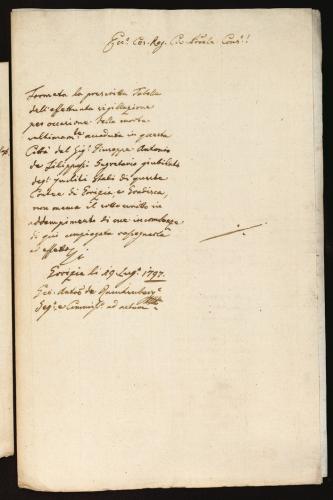 Ecc.º Ces. Reg. Cons.!
Formata la prescritta Tabella
dell'effettuata
per occasione della morte
ultimam.te accaduta in questa
Città del Sig.r Giuseppe Antonio
de Filippusi Segretario giubilato
degl'Incliti Stati di queste
Contee di Gorizia, e Gradisca,
non manca il sottoscritto in
addempimento di sue incombenze
di qui compiegata rassegnarla
ad effetto
Gorizia li 29 Lug.o 1797.
Gio. Anton de
Seg.o e ad actum